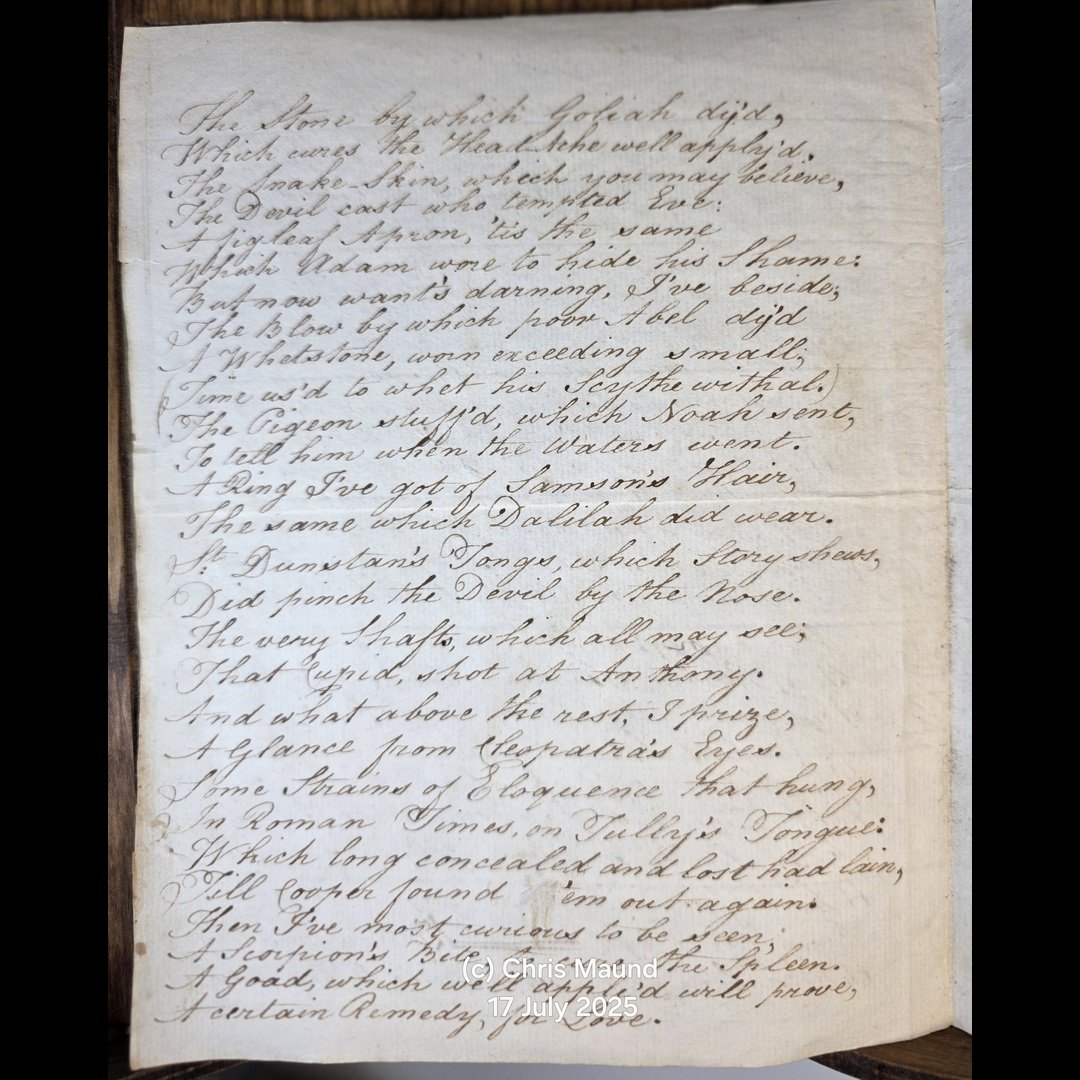 The Stone by which Goliah dy'd,
Which cures the Head Ache well apply'd.
The Snake-Skin, which you may believe,
The Devil cast who tempted Eve:
A figleaf Apron, 'tis the same
Which Adam wore to hide his Shame:
But now want's darning, I've beside;
The Blow by which poor Abel dy'd
A Whetstone, worn exceeding small;
(Time us'd to whet his Scythe withal.)
The Pigeon stuff'd, which Noah sent,
To tell him when the Waters went.
A Ring I've got of Samson's Hair,
The same which Dalilah did wear.
St. Dunstan's Tongs, which Story shews,
Did pinch the Devil by the Nose.
The very Shafts, which all may see;
That Cupid, shot at Anthony.
And what above the rest, I prize,
A Glance from Cleopatra's Eyes.
Some Strains of Eloquence that hung,
In Roman Times, on Tully's Tongue:
Which long concealed and lost had lain,
Till Cooper found 'em out again.
Then I've most curious to be seen;
A Scorpion's Bite the Spleen.
A Goad, which well applied will prove,
A certain Remedy, for Love.
(c) Chris Maund
17 July 2025